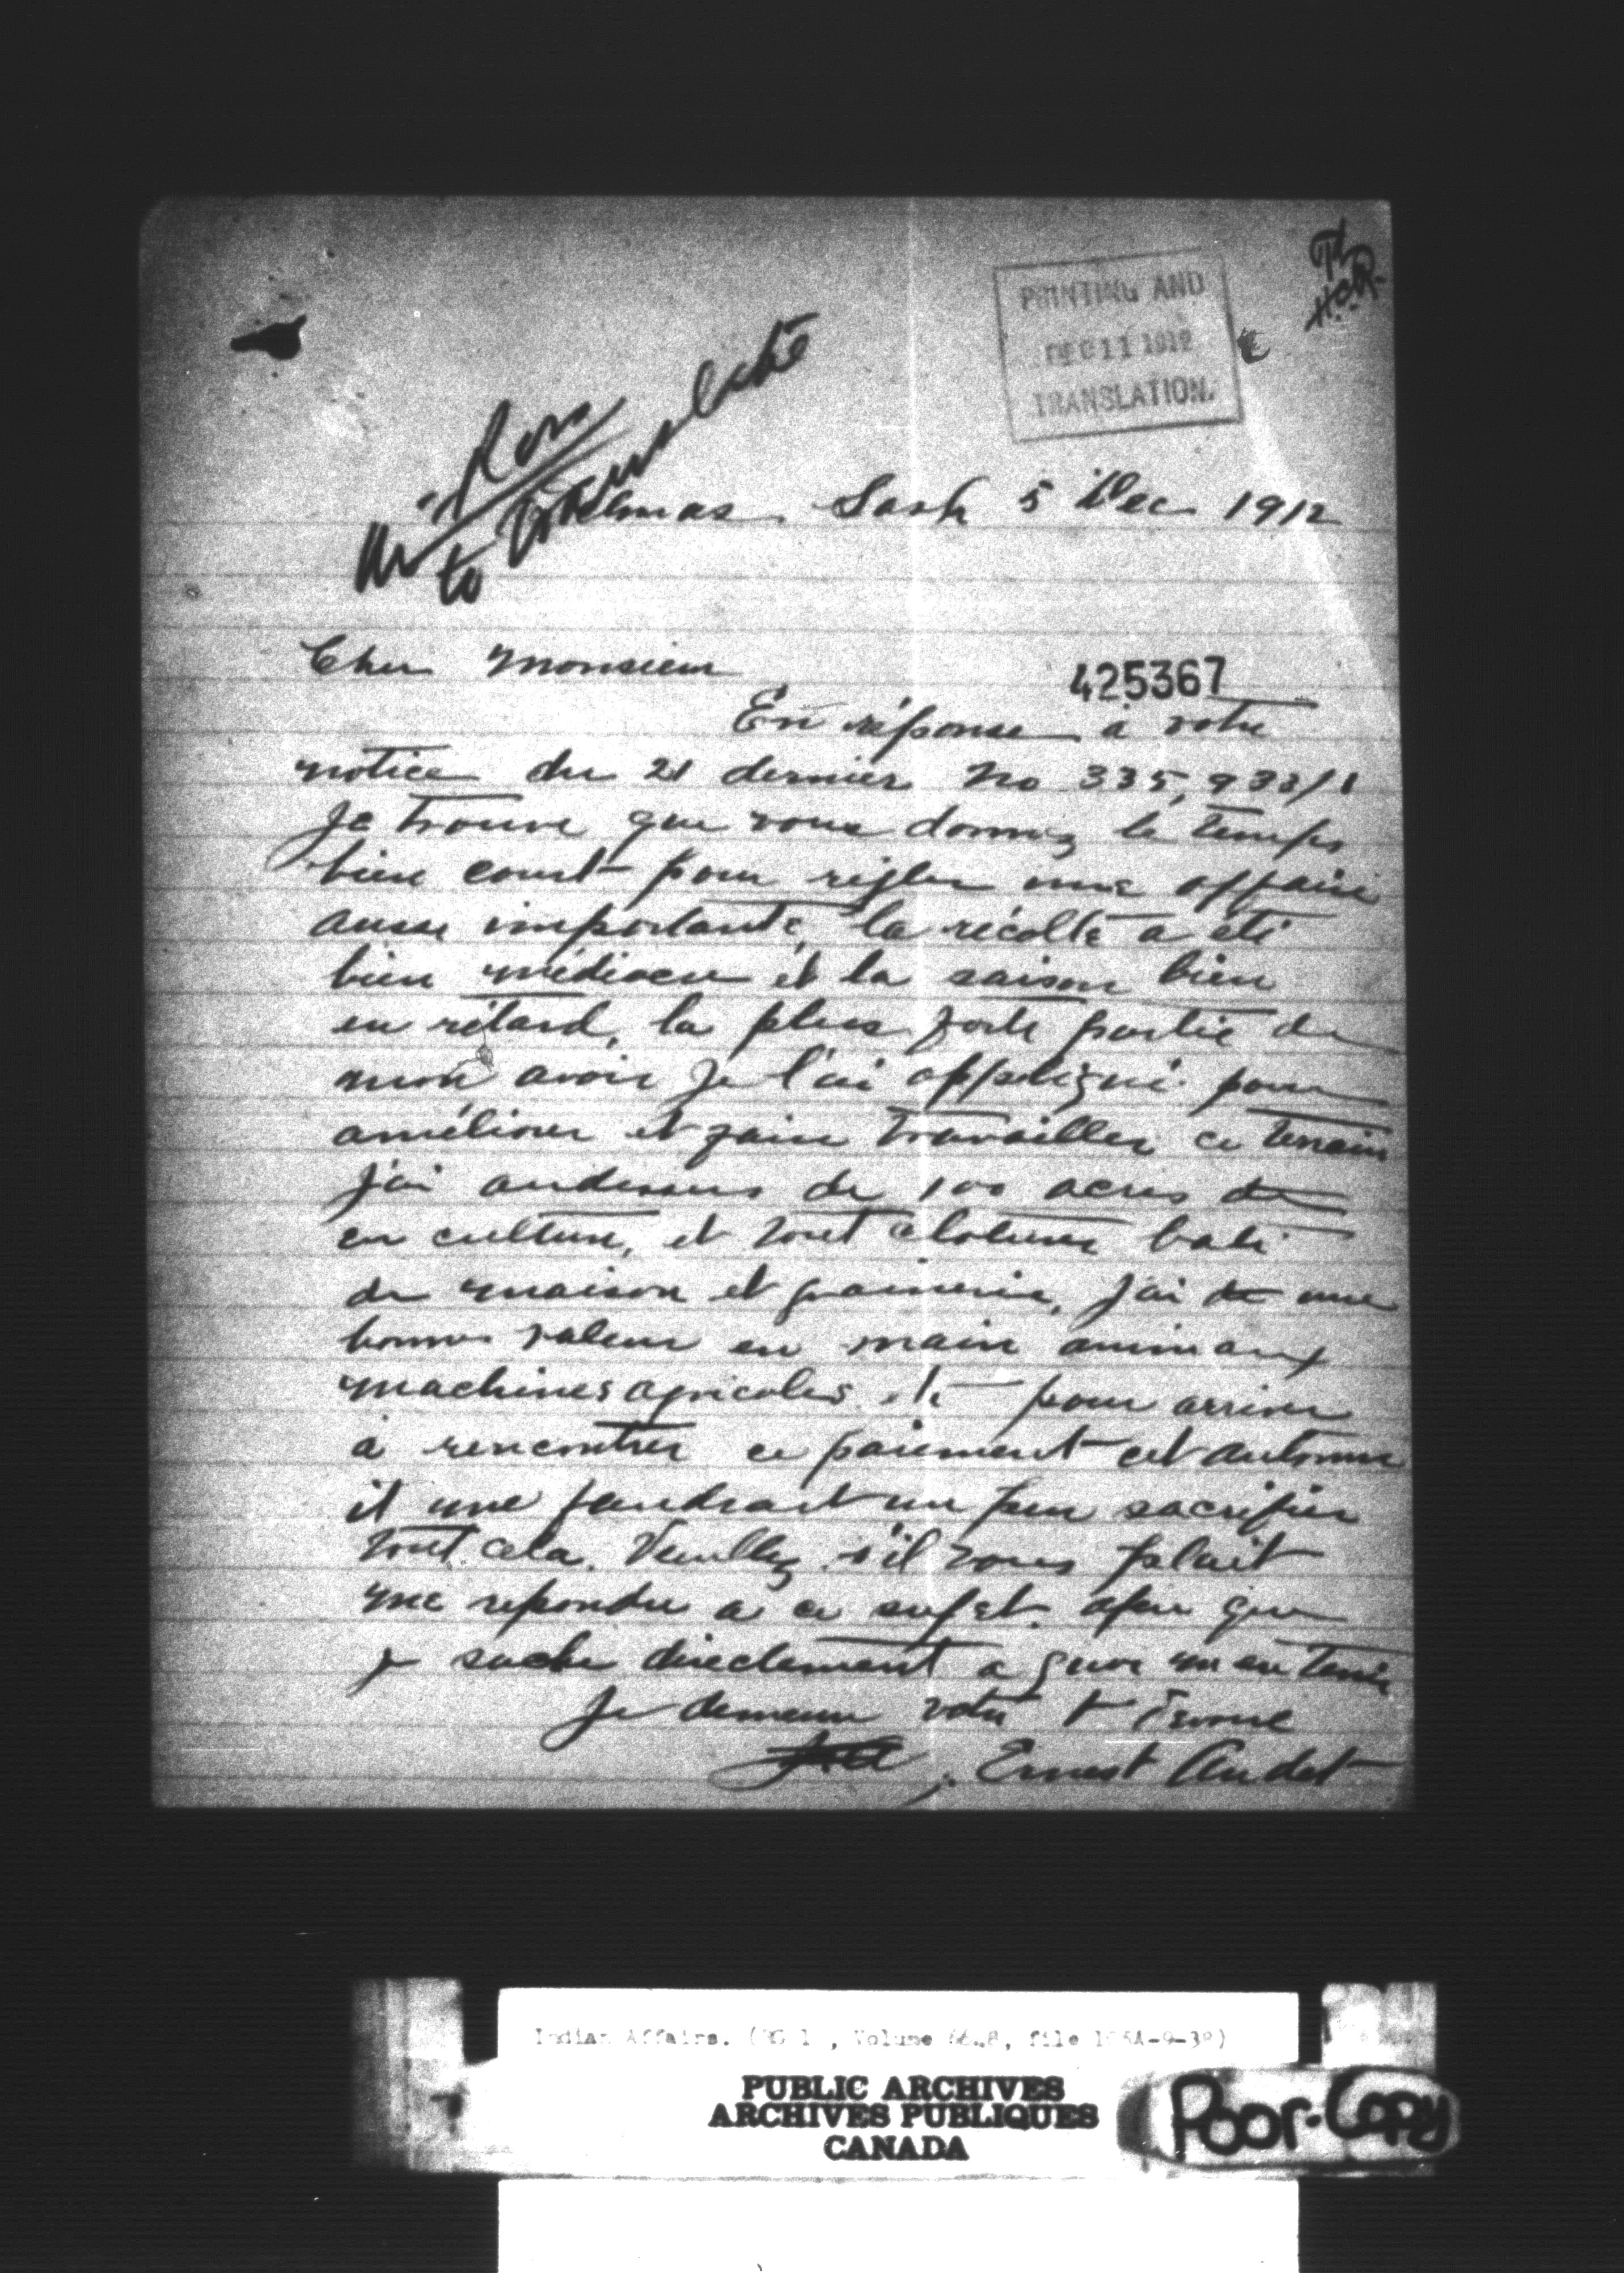 PRINTING AND
DEC 11 1912
TRANSLATION.
H.C.R.
to
Delmas Sask 5 Dec 1912
Cher Monsieur
425367
En réponse à votre
notice du 21 dernier No 335,933/1
Je trouve que vous donnez le temps
bien court pour régler une affaire
aussi importante, la récolte a été
bien médiocre et la saison bien
en rétard, la plus forte partie de
mon avoir je l'ai appliqué pour
améliorer et faire travailler ce terrain
J'ai audessus de 100 acres de
en culture, et tout cloturer bati
de maison et grainerie, J'ai de une
bonne valeur en main animaux
machines agricoles etc pour arriver
à rencontrer ce paiement cet automne
il me faudrait un peu sacrifier
tout cela. Veuillez s'il vous plait
me repondre a ce sujet afin que
je sache directement a quoi m'en tenir
Je demeure votre t dévoué
Ernest Audet
Indian Affairs. (RG 1 , Volume 66 8, file 1 6A-9-38)
PUBLIC ARCHIVES
ARCHIVES PUBLIQUES
CANADA
Poor-Copy